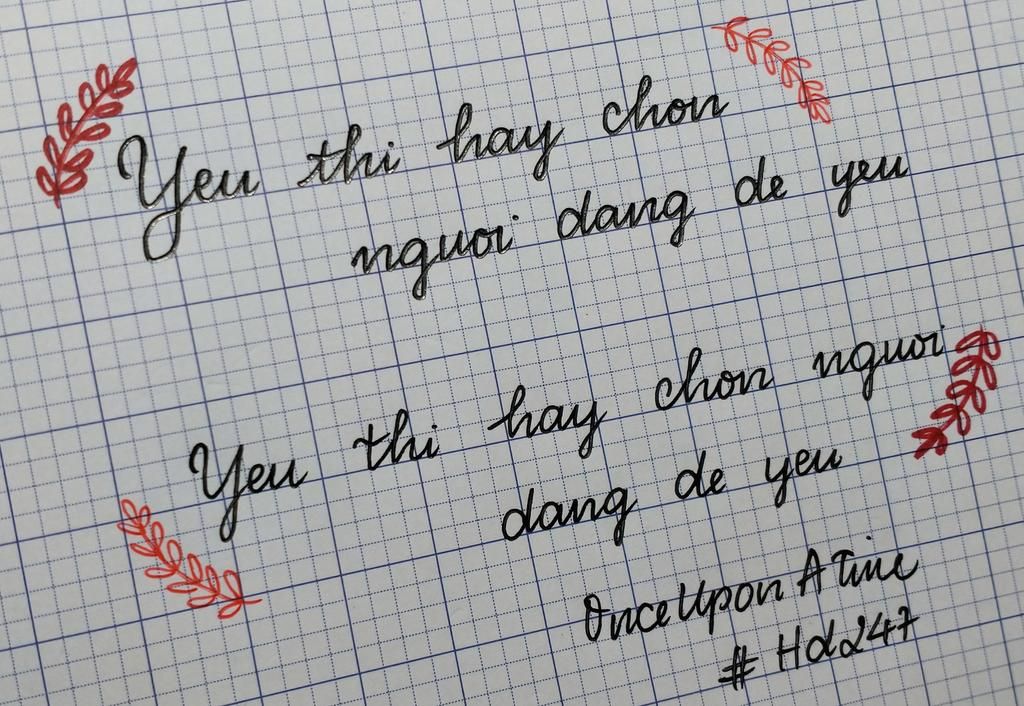 Yeu thi hay chon
nguoi dang de yeu
Yeu thi hay chon nguoi
dang de yeu
Once Upon A Time
# Hd247